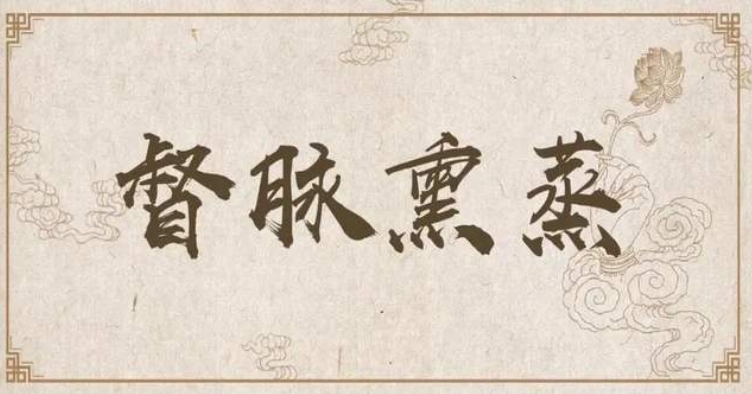 督脉熏蒸